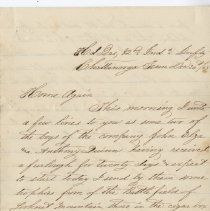 Hd Qrs, 124 Ind
Chattanooga Tenn
Home Again
This morning I write
a few lines to you as some two of
the boys of the company John Edge
& Anthony Dixon having received
a furlough for twenty days & expect
to start today I send by them some
trophies from of the Battle field of
Lookout Mountain these in the cigar box